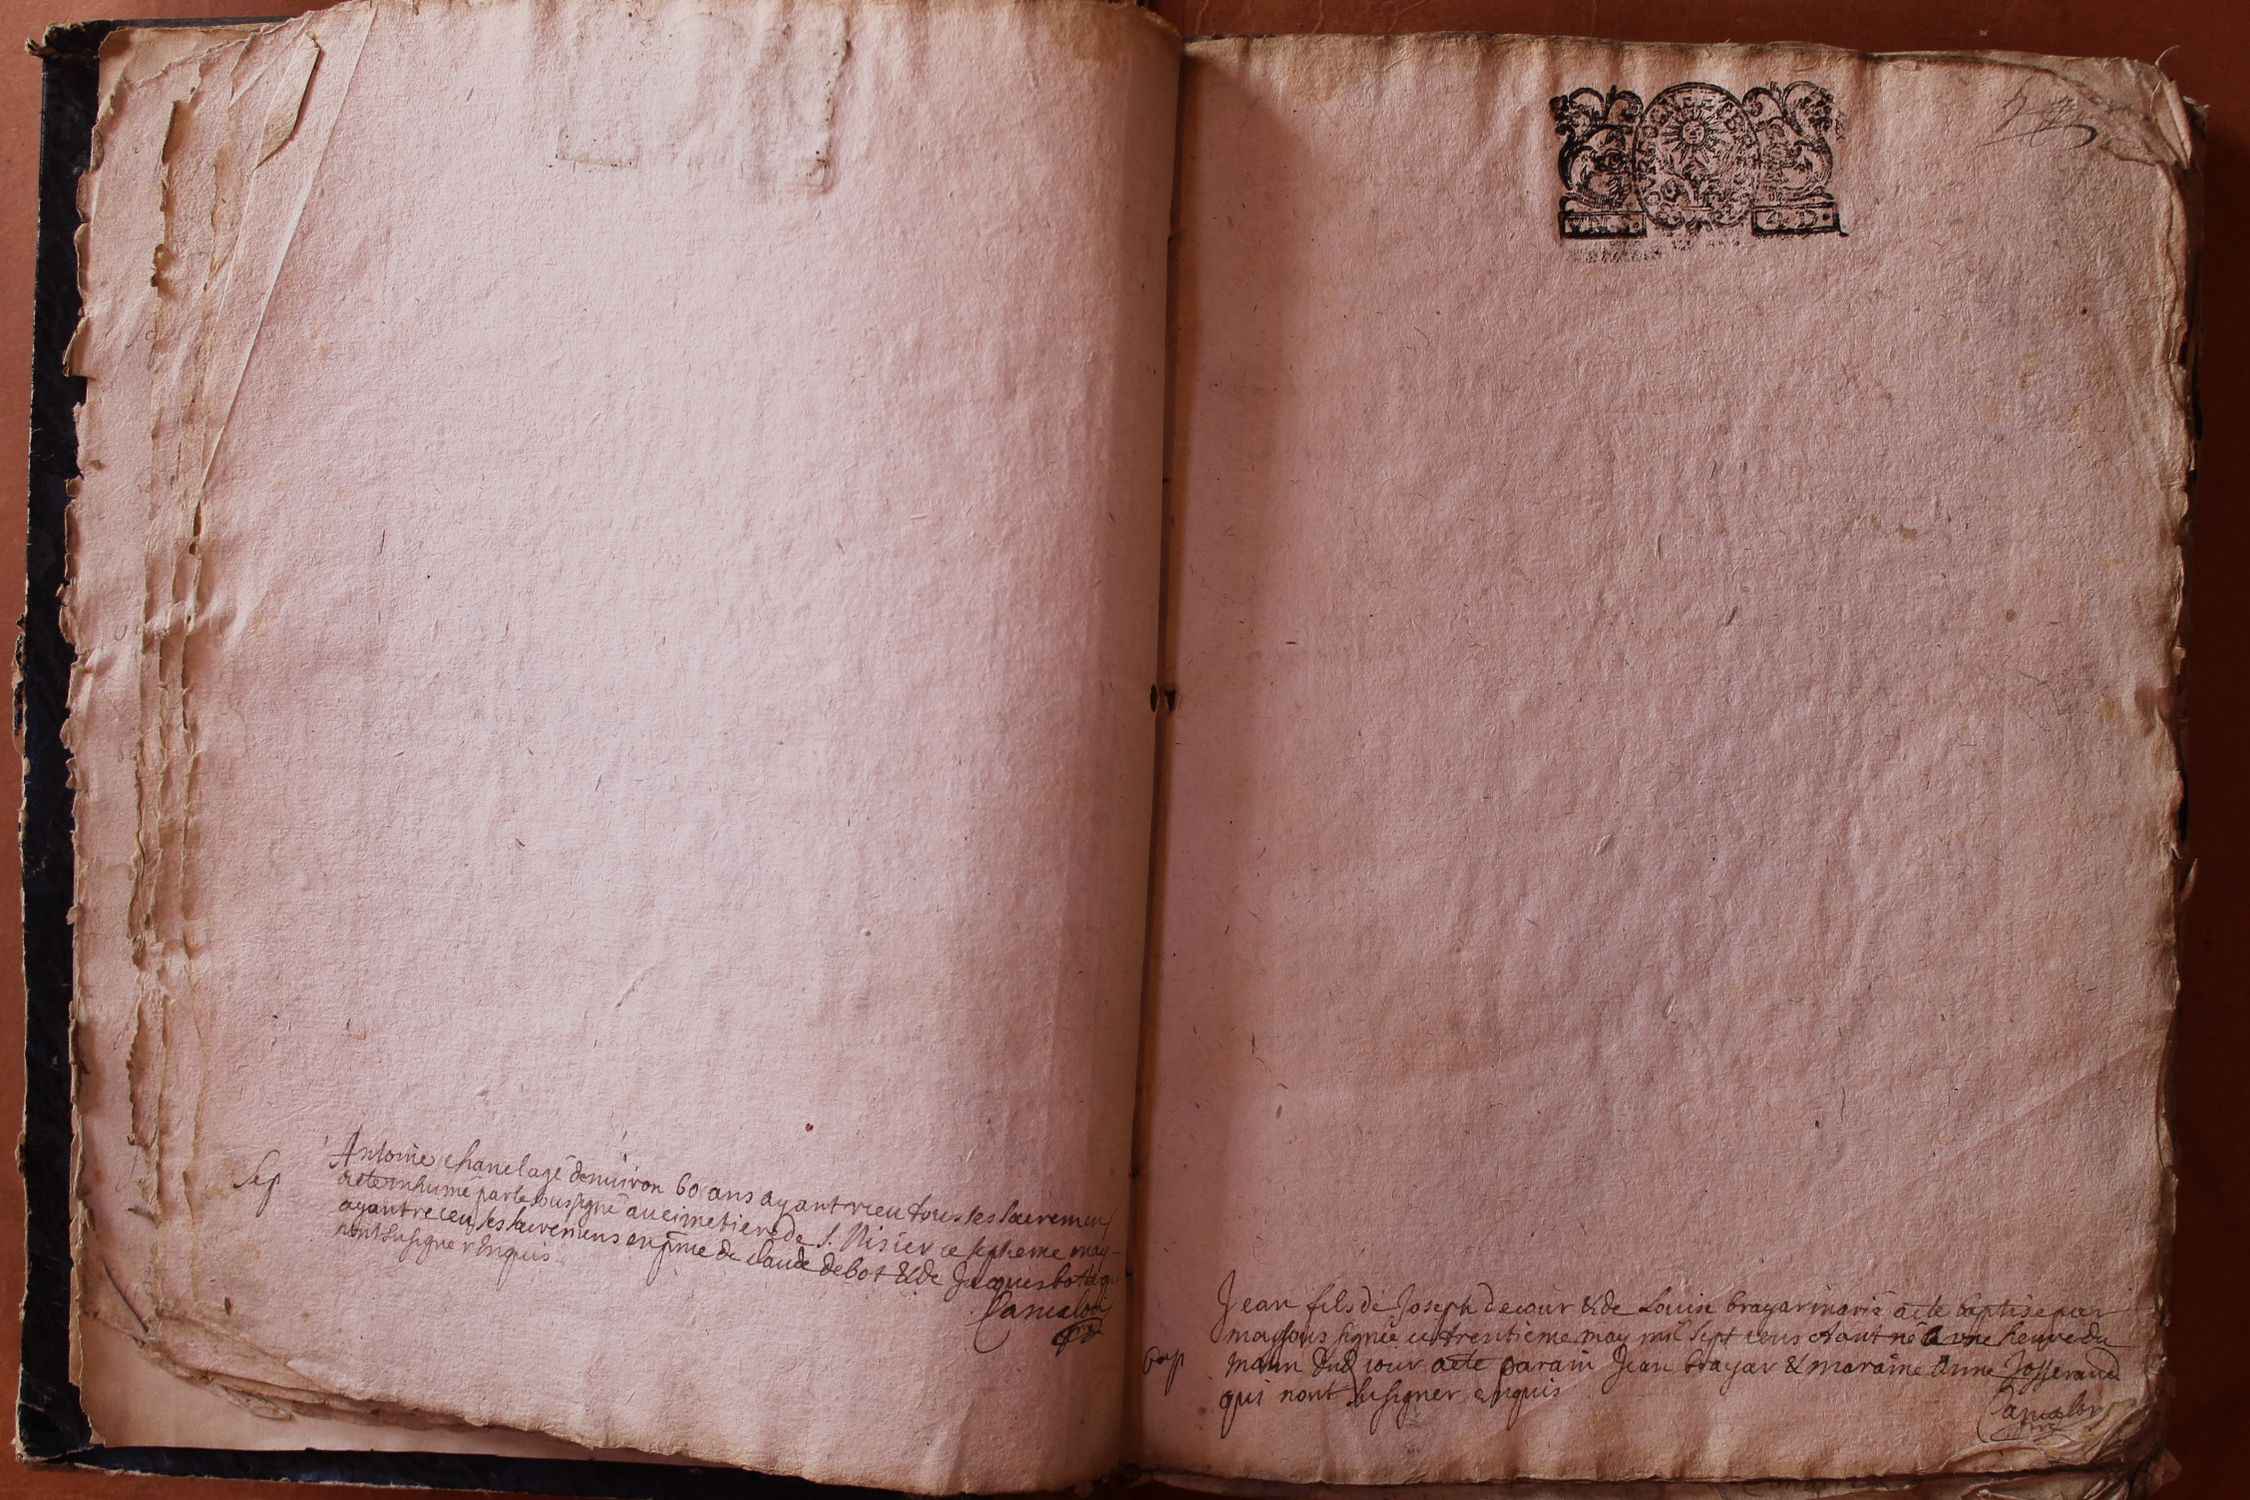 Sep
Antoine chanel agé denuiron 60 ans ayant receu tous les sacremens
a ete inhumé par le soussigné au cimetiere de S. Nisier ce septieme may
ayant receu les sacremens en pnce de claude debot & de Jacques botas
nont su signer enquis
Camalor
Jean fils de Joseph decour & de Louise brayar mariés a ete baptisé par
moy sous signé ce trentieme may mil sept cens etant né a une heure du
Bap
matin dud jour a ete parain Jean brayar & maraine Anne Josserand
qui nont su signer enquis
Camalor